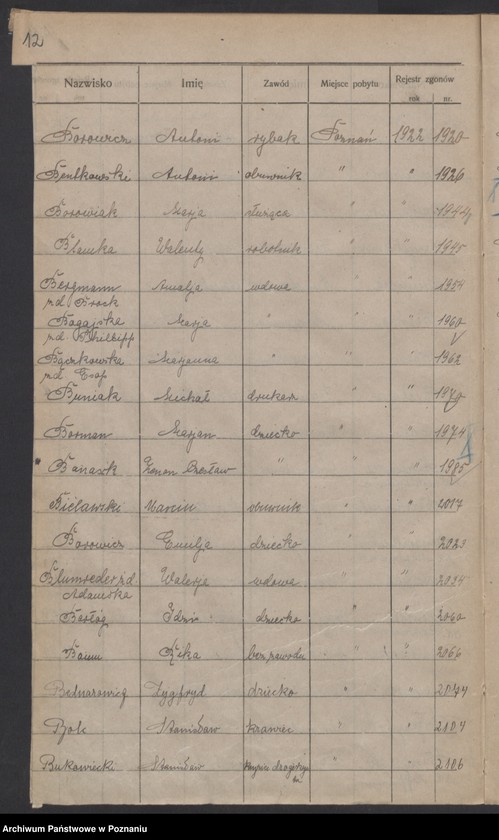 12
Nazwisko Imię Zawód Miejsce pobytu Rejestr zgonów
rok nr.
Borowicz Antoni rybak Poznań 1922 1920
Bentkowski Antoni obuwnik " " 1926
Borowiak Marja służąca " " 1944
Blamka Walenty robotnik " " 1945
Bergmann Amalja wdowa " " 1954
zd. Brock
Bogajska Marja " " " 1960
zd. Philipp
Bączkowska Marjanna " " " 1962
zd.
Buniak Michał drukarz " " 1970
Borman Marjan dziecko " " 1974
Banaszk Zenon Czesław " " " 1985
Bielawski Marcin obuwnik " " 2017
Borowicz Emilja dziecko " " 2023
Blumreder zd. Walerja wdowa " " 2034
Adamska
Bartóg Idzi dziecko " " 2060
Baum Rika bez zawodu " " 2066
Bednarowicz Zygfryd dziecko " " 2074
Bolc Stanisław krawiec " " 2104
Bukowiecki Stanisław " " 2106
Archiwum Państwowe w Poznaniu